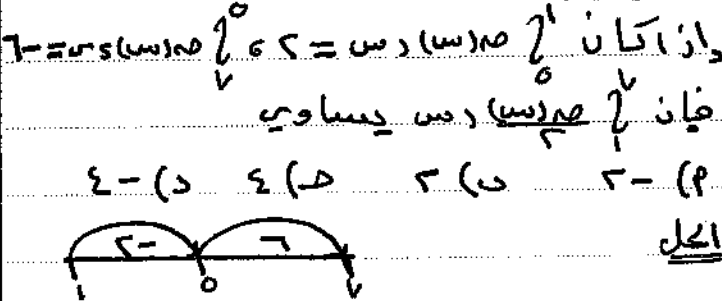 إذا كان ∫₅¹ ق(س) دس = ٢ ، ∫₇⁵ ق(س) دس = -٦
فإن ∫₁⁷ ق(س)/٢ دس يساوي
أ) -٢ ب) ٢ جـ) ٤ د) -٤
الحل
-٢ ٦
١ ٥ ٧